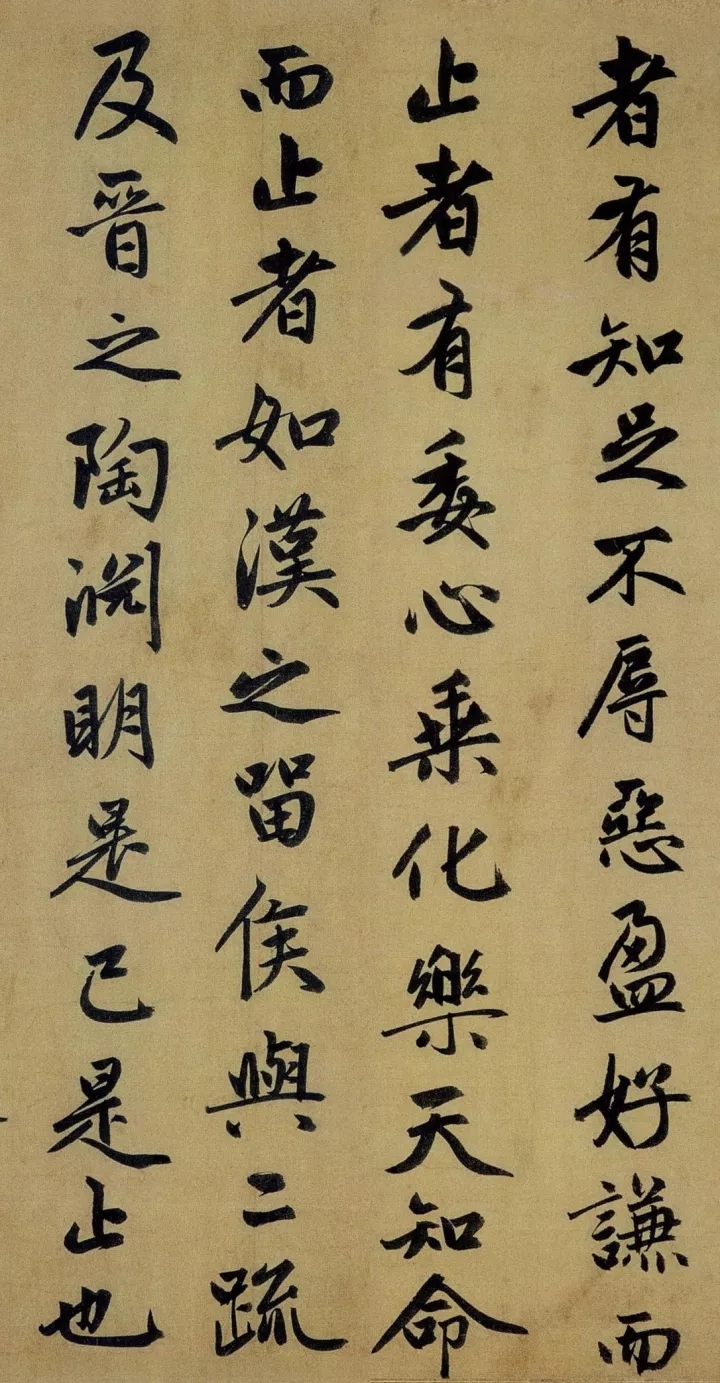 者有知足不辱惡盈好謙而
止者有委心乗化樂天知命
而止者如漢之留侯與二疏
及晉之陶渊明是已是止也